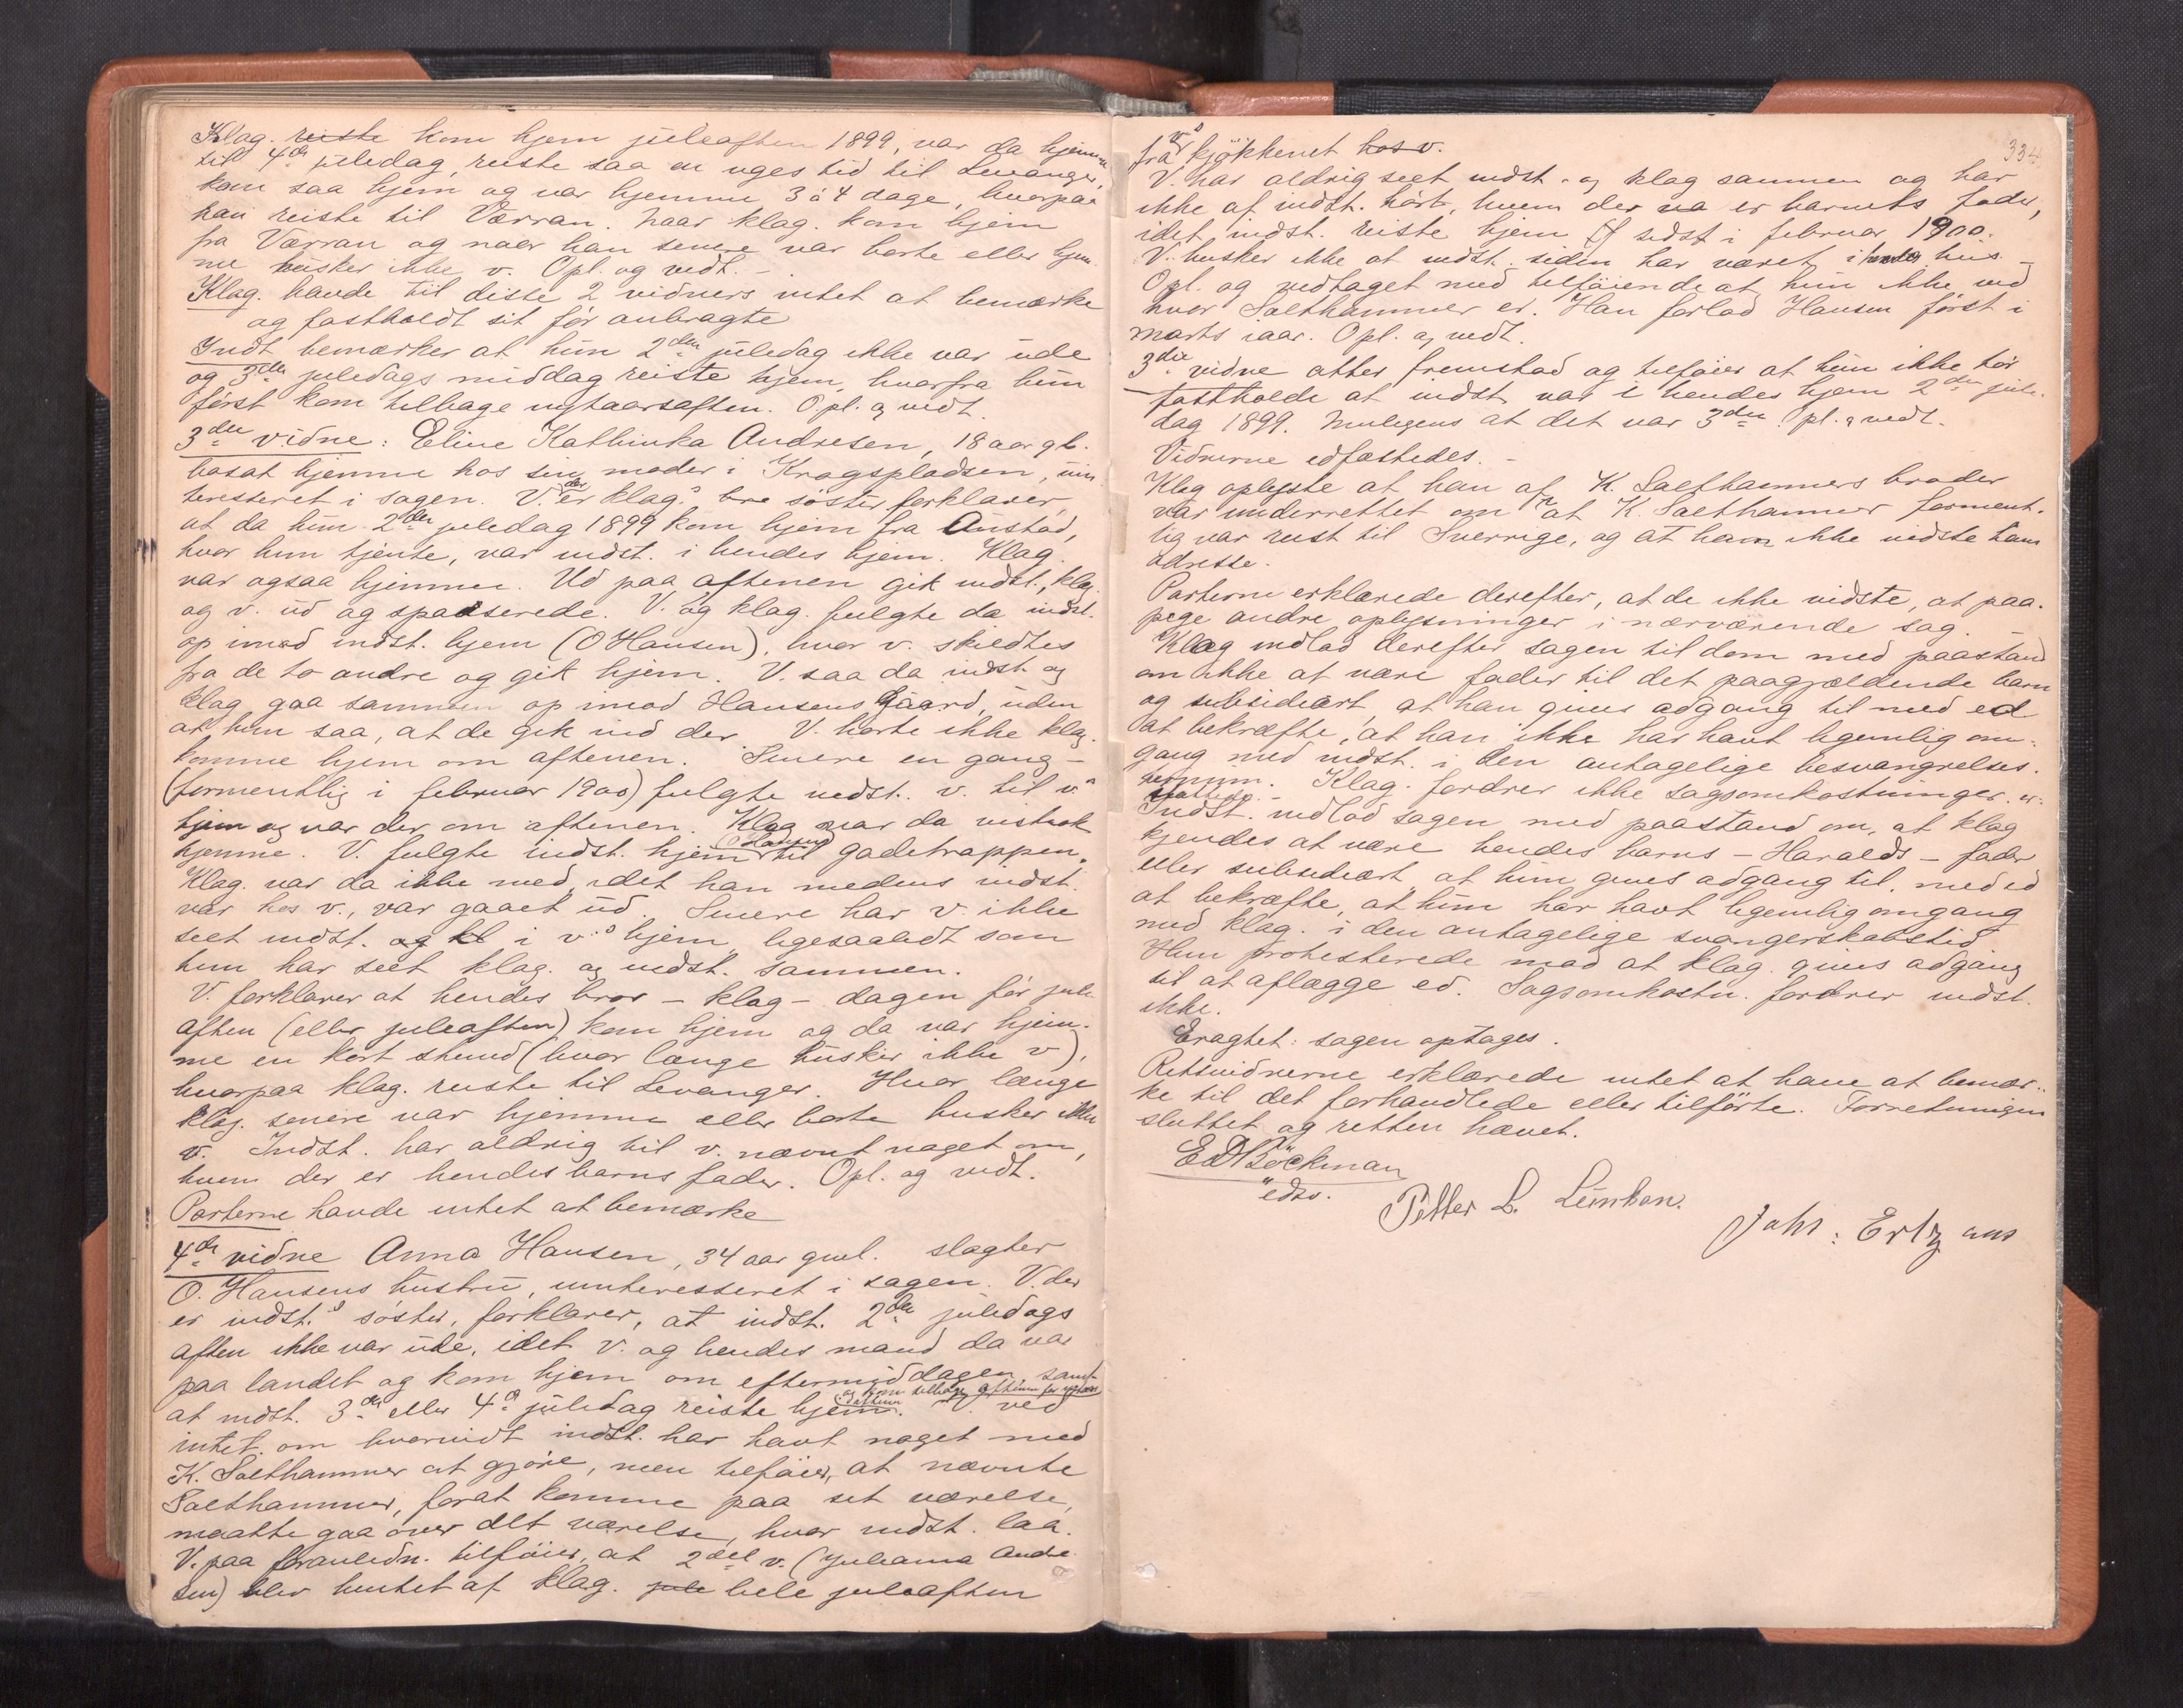 Klag. reiste kom hjem juleaften 1899, var da hjemme
til 4de juledag, reiste saa en uges tid til Levanger,
kom saa hjem og var hjemme 3 à 4 dage, hvorpaa
han reiste til Værran. Naar klag. kom hjem
fra Værran og naar han senere var borte eller hjem-
me husker ikke v. Opl. og vedt. –
Klag. havde til disse 2 vidners intet at bemærke
og fastholdt sit før anbragte
Indst bemærker at hun 2den juledag ikke var ude
og 3die juledags middag reiste hjem, hvorfra hun
først kom tilbage nytaarsaften. Opl. og vedt.
3die vidne: Eline Kathinka Andresen, 18 aar gl.
bosat hjemme hos sin moder i Kragspladsen, uin
teresseret i sagen. V. der er klags bro søster forklarer,
at da hun 2den juledag 1899 kom hjem fra Austad,
hvor hun tjente, var indst. i hendes hjem. Klag.
var ogsaa hjemme. Ud paa aftenen gik indst., klag.
og v. ud og spadserede. V. og klag. fulgte da indst.
op imod indst. hjem (O Hansen), hvor v. skiltes
fra de to andre og gik hjem. V. saa da indst og
klag gaa sammen op imod Hansens Gaard, uden
at hun saa, at de gik ind der. V. hørte ikke klag.
komme hjem om aftenen. Senere en gang –
(formentlig i februar 1900) fulgte indst. v. til v's
hjem og var der om aftenen. Klag var da vistnok
hjemme. V. fulgte indst. hjem til O Hansens gadetrappen.
Klag. var da ikke med, idet han medens indst.
var hos v., var gaaet ud. Senere har v. ikke
seet indst. og kl i v.'s hjem, ligesaalidt som
hun har seet klag. og indst. sammen.
V. forklarer at hendes bror – klag – dagen før jule
aften (eller juleaften) kom hjem og da var hjem-
me en kort stund (hvor længe husker ikke v),
hvorpaa klag. reiste til Levanger. Hvor længe
klag. senere var hjemme eller borte husker ikke
v. Indst. har aldrig til v. nævnt noget om,
hvem der er hendes barns fader. Opl. og vedt.
Parterne havde intet at bemærke
4de vidne Anna Hansen, 34 aar gml. slagter
O. Hansens hustru, uinteresseret i sagen. V. der
er indst.'s søster, forklarer, at indst. 2den juledags
aften ikke var ude, idet v. og hendes mand da var
paa landet og kom hjem om eftermiddagen samt
at indst. 3die eller 4de juledag reiste hjem og kom tilbage aftenen før nytaarsaften. V. ved
intet om hvorvidt indst. har havt noget med
K. Salthammer at gjøre, men tilføier, at nævnte
Salthammer, forat komme paa sit værelse,
maatte gaa over det værelse, hvor indst. laa.
V. paa foranledn. tilføier, at 2det v. (Juliana Andre
sen) blev hentet af klag. jule lille juleaften
334
fra v's kjøkkenet hos v.
V. har aldrig seet indst. og klag sammen og har
ikke af indst. hørt, hvem der va er barnets fader,
idet indst. reiste hjem sidst i februar 1900.
V. husker ikke at indst. siden har været i hendes hus –
Opl. og vedtaget med tilføiende at hun ikke ved
hvor Salthammer er. Han forlod Hansen først i
marts iaar. Opl. og vedt.
3die vidne atter fremstod og tilføier at hun ikke tør
fastholde at indst. var i hendes hjem 2den jule-
dag 1899. Muligens at det var 3die. Opl. & vedt.
Vidnerne edfæstedes. –
Klag oplyste at han af K. Salthammers broder
var underrettet om at K. Salthammer forment-
lig var reist til Sverrige, og at han ikke vidste hans
adresse.
Parterne erklærede derefter, at de ikke vidste, at paa-
pege andre oplysninger i nærværende sag. –
Klag indlod derefter sagen til dom med paastand
om ikke at være fader til det paagjældende barn
og subsidiært, at han gives adgang til med ed
at bekræfte, at han ikke har havt legemlig om-
gang med indst. i den antagelige besvangrelses-
termin. Klag. fordrer ikke sagsomkostninger er-
stattede. –
Indst. indlod sagen med paastand om, at klag
kjendes at være hendes barns – Haralds – fader
eller subsidiært at hun gives adgang til, med ed
at bekræfte, at hun har havt legemlig omgang
med klag. i den antagelige svangerskabstid.
Hun protesterede mod at klag. gives adgang
til at aflægge ed. Sagsomkostn. fordrer indst.
ikke.
Eragtet: sagen optages.
Retsvidnerne erklærede intet at have at bemær-
ke til det forhandlede eller tilførte. Forretningen
sluttet og retten hævet.
E D Bøckman
edsv.
Petter L. Leinhan.
Joh: Ertz aas